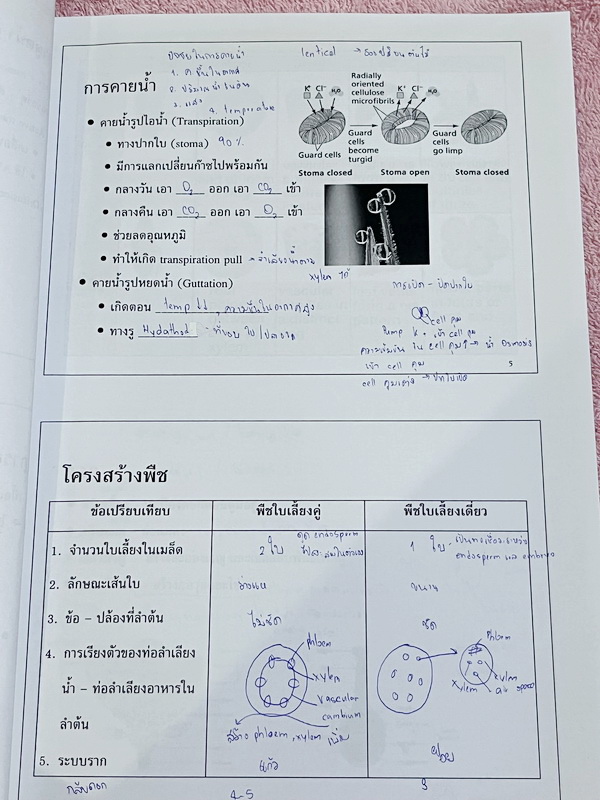 ปัจจัยในการคายน้ำ
lentical → รอยปริบนต้นไม้
1. ค. ชื้นในอากาศ
การคายน้ำ
2. ปริมาณน้ำในดิน
3. แสง
4. temperature
คายน้ำรูปไอน้ำ (Transpiration)
• ทางปากใบ (stoma) 90%
• มีการแลกเปลี่ยนก๊าซไปพร้อมกัน
• กลางวัน เอา O₂ ออก เอา CO₂ เข้า
• กลางคืน เอา CO₂ ออก เอา O₂ เข้า
• ช่วยลดอุณหภูมิ
• ทำให้เกิด transpiration pull → ลำเลียงน้ำตาม
xylem ได้
• คายน้ำรูปหยดน้ำ (Guttation)
• เกิดตอน temp ↓↓, ความชื้นในอากาศสูง
• ทางรู Hydathod - ที่ขอบใบ/ปลาย
Radially
oriented
cellulose
microfibrils
K⁺ Cl⁻ H₂O
K⁺ Cl⁻ H₂O
Guard cells
Guard
cells
become
turgid
Guard
cells
go limp
Stoma closed
Stoma open
Stoma closed
การเปิด - ปิดปากใบ
cell คุม
Pump K⁺ เข้า cell คุม
ความเข้มข้น ใน cell คุม↑ → น้ำ Osmosis
เข้า cell คุม
cell คุมเต่ง → ปากใบเปิด
5
โครงสร้างพืช
ข้อเปรียบเทียบ พืชใบเลี้ยงคู่ พืชใบเลี้ยงเดี่ยว
1. จำนวนใบเลี้ยงในเมล็ด 2 ใบ ดูด endosperm 1 ใบ
endosperm และ embryo
2. ลักษณะเส้นใบ ร่างแห ขนาน
3. ข้อ – ปล้องที่ลำต้น ไม่ชัด ชัด
4. การเรียงตัวของท่อลำเลียง
น้ำ – ท่อลำเลียงอาหารใน
ลำต้น
phloem
xylem
vascular
cambium
สร้าง phloem, xylem เพิ่ม
Phloem
xylem
xylem
air space
5. ระบบราก แก้ว ฝอย
กลีบดอก 4-5 3